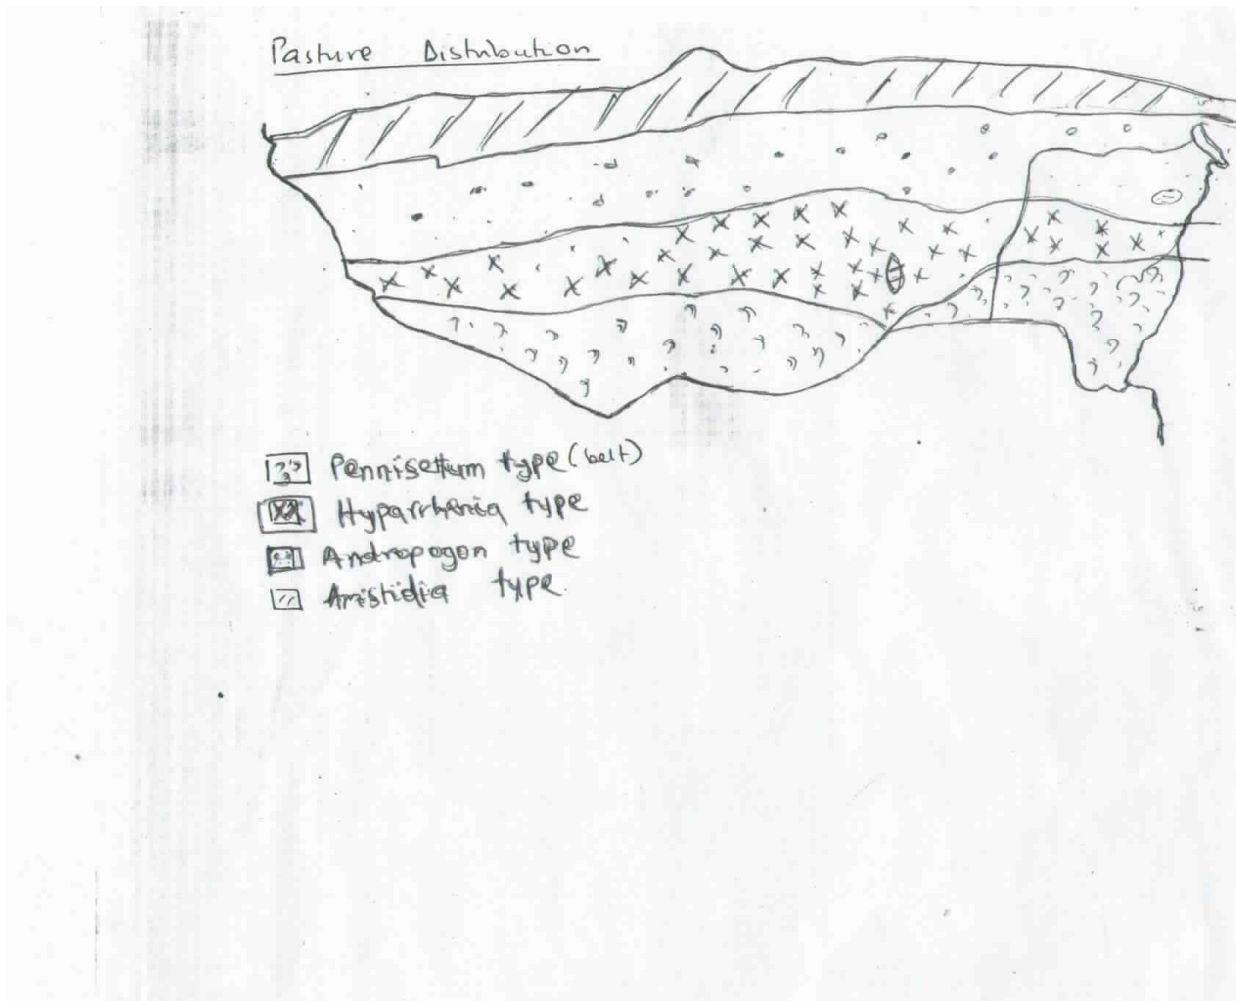 Pasture Distribution
Pennisettum type (belt)
Hyparrhenia type
Andropogon type
Aristidia type